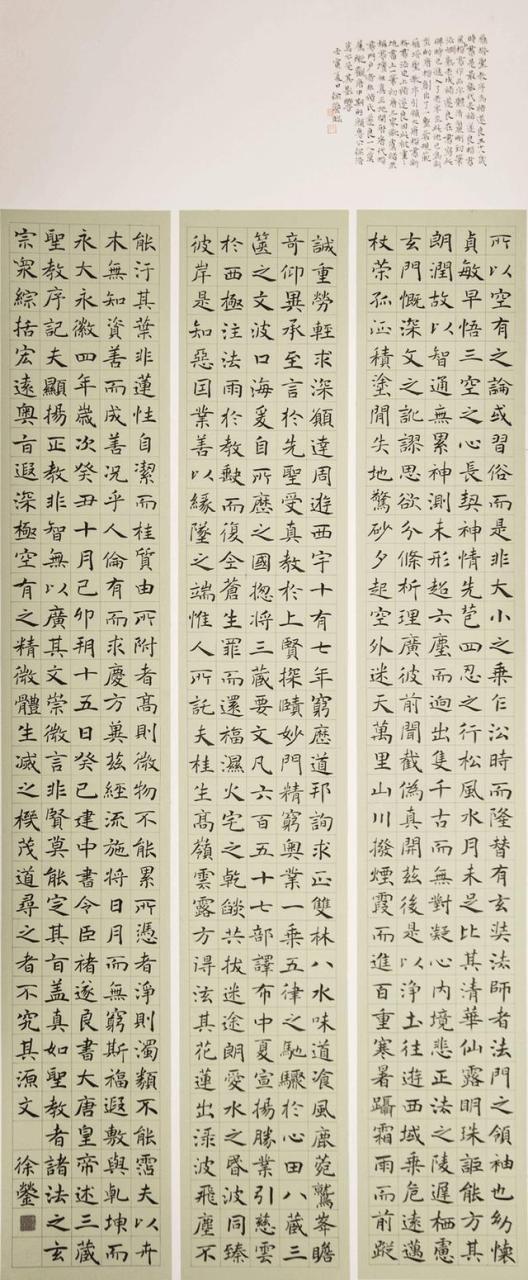 雁塔聖教序為褚遂良五十八歲
時書是最能代表褚遂良楷書
風格書作品字體清麗剛勁筆
所以空有之論或習俗而是非大小之乘乍沿時而隆替有玄奘法師者法門之領袖也幼懷
貞敏早悟三空之心長契神情先苞四忍之行松風水月未足比其清華仙露明珠詎能方其
朗潤故以智通無累神測未形超六塵而迥出隻千古而無對凝心內境悲正法之陵遲栖慮
玄門慨深文之訛謬思欲分條析理廣彼前聞截偽真開茲後是以淨土往遊西域乘危遠邁
杖荣孤征積塗聞失地驚砂夕起空外迷天萬里山川撥煙霞而進百重寒暑躡霜雨而前蹤
誠重勞輕求深願達周遊西宇十有七年窮歷道邦詢求正雙林八水味道飡風鹿菀鷲峯瞻
奇仰異承至言於先聖受真教於上賢探賾妙門精窮奧業一乘五律之馳驟於心田八藏三
篋之文波口海爰自所歷之國揔將三藏要文凡六百五十七部譯布中夏宣揚勝業引慈雲
於西極注法雨於教而復仝蒼生罪而還福濕火宅之乾燄共拔迷途朗愛水之昏波同臻
彼岸是知惡因業善以緣墜之端惟人所託夫桂生高嶺雲露方得法其花蓮出淥波飛塵不
能汙其葉非蓮性自潔而桂質由所附者高則微物不能累所憑者淨則濁類不能霑夫以卉
木無知資善而成善況乎人倫有而求慶方冀茲經流施將日月而無窮斯福遐敷與乹坤而
永大永徽四年歲次癸丑十月己卯朔十五日癸巳建中書令臣褚遂良書大唐皇帝述三藏
聖教序記夫顯揚正教非智無以廣其文崇微言非賢莫能定其旨盖真如聖教者諸法之玄
宗衆綜括宏遠奧旨遐深極空有之精微體生滅之機茂道尋之者不究其源文 徐鎣